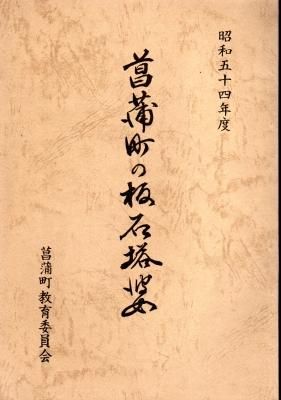 昭和五十四年度
菖蒲町の板石塔婆
菖蒲町教育委員会